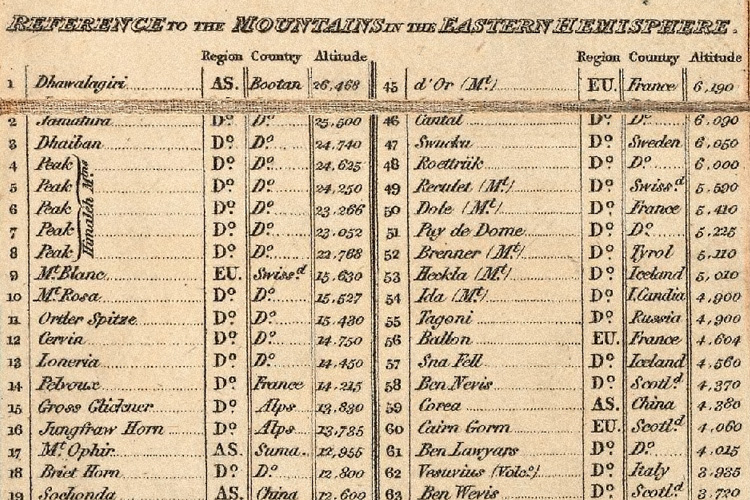 REFERENCE TO THE MOUNTAINS IN THE EASTERN HEMISPHERE.
Region Country Altitude Region Country Altitude
1 Dhawalagiri AS. Bootan 26,468 45 d'Or (Mt.) EU. France 6,190
2 Jamatura Do. Do. 25,500 46 Cantal Do. Do. 6,090
3 Dhaiban Do. Do. 24,740 47 Swucku Do. Sweden 6,050
4 Peak Himaleh Mtns Do. Do. 24,625 48 Roettrük Do. Do. 6,000
5 Peak Do. Do. 24,250 49 Reculet (Mt.) Do. Swissd. 5,590
6 Peak Do. Do. 23,266 50 Dole (Mt.) Do. France 5,410
7 Peak Do. Do. 23,052 51 Puy de Dome Do. Do. 5,225
8 Peak Do. Do. 22,768 52 Brenner (Mt.) Do. Tyrol 5,110
9 Mt. Blanc EU. Swissd. 15,630 53 Heckla (Mt.) Do. Iceland 5,010
10 Mt. Rosa Do. Do. 15,527 54 Ida (Mt.) Do. I. Candia 4,900
11 Ortler Spitze Do. Do. 15,430 55 Tagoni Do. Russia 4,900
12 Cervin Do. Do. 14,750 56 Ballon EU. France 4,604
13 Loneria Do. Do. 14,450 57 Sna Fell Do. Iceland 4,560
14 Pelvoux Do. France 14,215 58 Ben Nevis Do. Scotld. 4,370
15 Gross Glickner Do. Alps 13,830 59 Corea AS. China 4,380
16 Jungfraw Horn Do. Alps 13,735 60 Cairn Gorm EU. Scotld. 4,060
17 Mt. Ophir AS. Suma. 12,955 61 Ben Lawyars Do. Do. 4,015
18 Briet Horn Do. Do. 12,800 62 Vesuvius (Volc.) Do. Italy 3,935
19 Sochonda AS. China 12,600 63 Ben Wevis Do. Scotld. 3,720